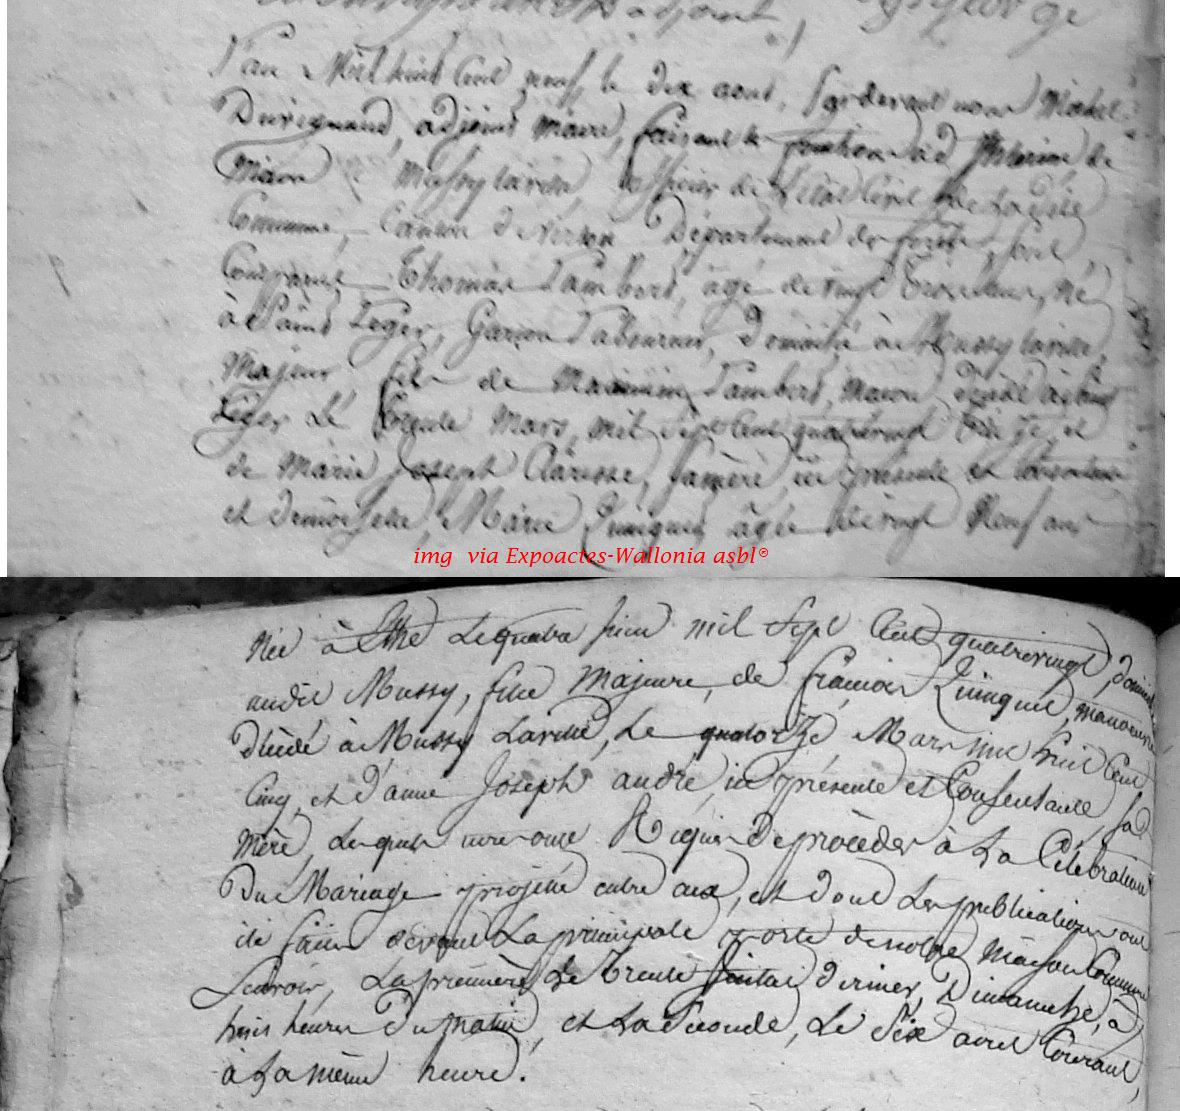 adjoint,
L'an Mil huit Cent neuf, le dix aout, pardevant nous Michel
Duvignaud, adjoint maire, faisant les fonctions ad Interim de
Maire Mussylaville, officier de l'état Civil de Ladite
Commune, Canton de Virton Departement des forets, sont
Comparus Thomas Lambert, âgé de vingt trois ans, Né
à Saint Leger, Garçon Laboureur, domicilié à Mussy laville,
Majeur, fils de Maximin Lambert, Maçon, décédé à Saint
Leger Le trente Mars, mil Sept Cent quatrevingt treize, et
de Marie Joseph Clarisse, Samère, ici présente et Consentante
et demoiselle, Marie Quinquet âgée de vingt Neuf ans
img via Expoactes-Wallonia asbl®
Née à Ethe Le quatre juin mil Sept Cent quatrevingt, domiciliée
audit Mussy, fille Majeure, de françois Quinquet, manoeuvre
décédé à Mussy Laville, Le quatorze Mars mil huit Cent
Cinq, et d'anne Joseph andré, ici présente et Consentante, sa
mère, Lesquels nous ont Requis De procéder à La Célébration
Du Mariage projetté entre eux, et dont Les publications ont
été faites devant La principale porte de notre Maison Commune
Scavoir, La première Le trente juillet dernier, Dimanche, à
huit heures Du matin, et La Seconde, Le Six aout Courant,
à La même heure.